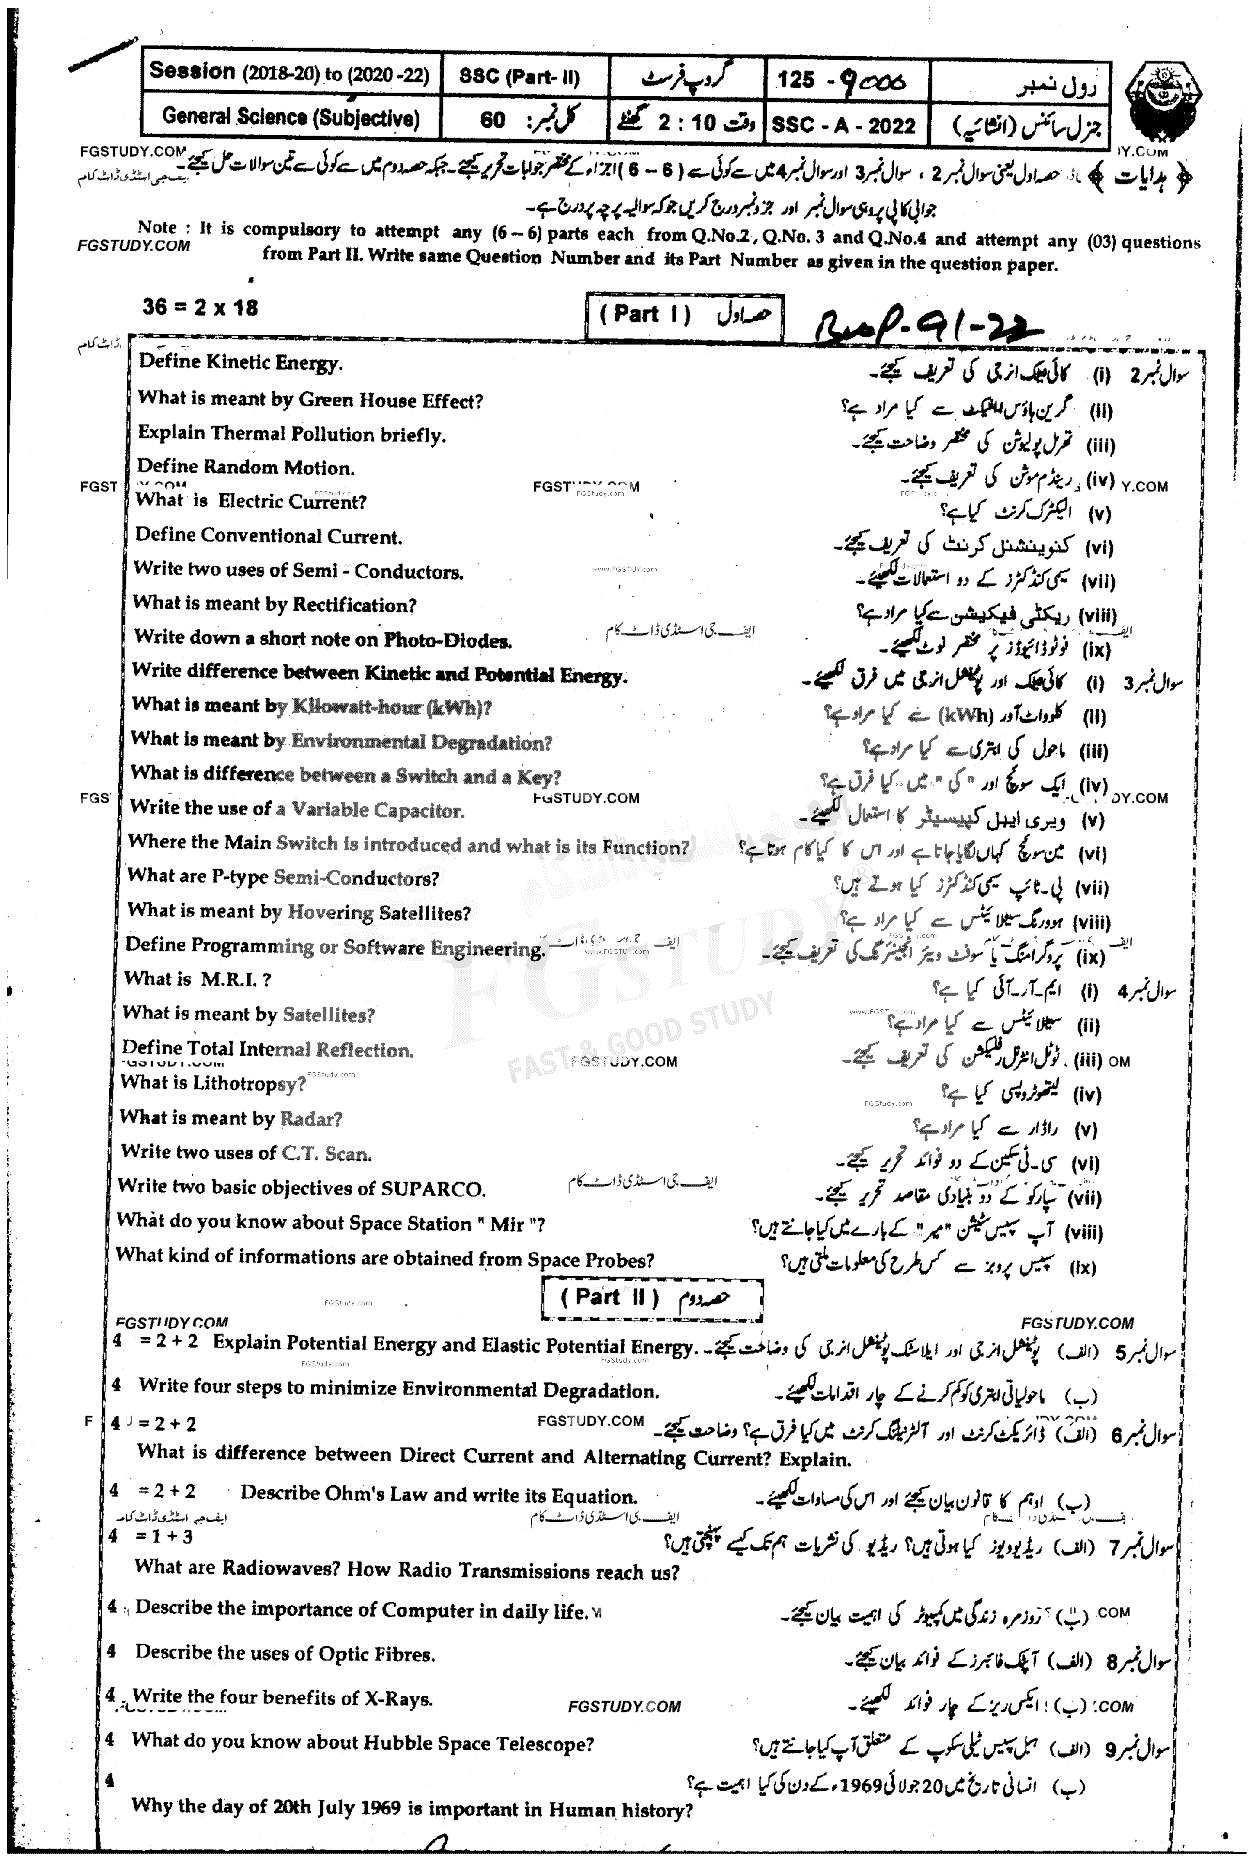 Session (2018-20) to (2020 -22) SSC (Part- II) گروپ فرسٹ 125 - 9000 رول نمبر
General Science (Subjective) کل نمبر: 60 وقت 2 : 10 گھنٹے SSC - A - 2022 جنرل سائنس (انشائیہ)
FGSTUDY.COM
﴿ ہدایات ﴾ حصہ اول یعنی سوال نمبر 2 ، سوال نمبر 3 اور سوال نمبر 4 میں سے کوئی سے (6 – 6) اجزاء کے مختصر جوابات تحریر کیجئے۔ جبکہ حصہ دوم میں سے کوئی سے تین سوالات حل کیجئے۔
ایف جی اسٹڈی ڈاٹ کام
جوابی کاپی پر وہی سوال نمبر اور جز نمبر درج کریں جو کہ سوالیہ پرچہ پر درج ہے۔
Note : It is compulsory to attempt any (6 – 6) parts each from Q.No.2 , Q.No. 3 and Q.No.4 and attempt any (03) questions
FGSTUDY.COM
from Part II. Write same Question Number and its Part Number as given in the question paper.
36 = 2 x 18 (Part I) حصہ اول
Define Kinetic Energy. سوال نمبر 2 (i) کائی نیٹک انرجی کی تعریف کیجئے۔
What is meant by Green House Effect? (ii) گرین ہاؤس ایفیکٹ سے کیا مراد ہے؟
Explain Thermal Pollution briefly. (iii) تھرمل پولیوشن کی مختصر وضاحت کیجئے۔
Define Random Motion. (iv) رینڈم موشن کی تعریف کیجئے۔
What is Electric Current? (v) الیکٹرک کرنٹ کیا ہے؟
Define Conventional Current. (vi) کنوینشنل کرنٹ کی تعریف کیجئے۔
Write two uses of Semi - Conductors. (vii) سیمی کنڈکٹرز کے دو استعمالات لکھیئے۔
What is meant by Rectification? (viii) ریکٹی فیکیشن سے کیا مراد ہے؟
Write down a short note on Photo-Diodes. ایف جی اسٹڈی ڈاٹ کام (ix) فوٹو ڈائیوڈز پر مختصر نوٹ لکھیئے۔
Write difference between Kinetic and Potential Energy. سوال نمبر 3 (i) کائی نیٹک اور پوٹینشل انرجی میں فرق لکھیئے۔
What is meant by Kilowatt-hour (kWh)? (ii) کلوواٹ آور (kWh) سے کیا مراد ہے؟
What is meant by Environmental Degradation? (iii) ماحول کی ابتری سے کیا مراد ہے؟
What is difference between a Switch and a Key? (iv) ایک سوئچ اور "کی" میں کیا فرق ہے؟
Write the use of a Variable Capacitor. FGSTUDY.COM (v) ویری ایبل کپیسیٹر کا استعمال لکھیئے۔
Where the Main Switch is introduced and what is its Function? (vi) مین سوئچ کہاں لگایا جاتا ہے اور اس کا کیا کام ہوتا ہے؟
What are P-type Semi-Conductors? (vii) پی-ٹائپ سیمی کنڈکٹرز کیا ہوتے ہیں؟
What is meant by Hovering Satellites? (viii) ہوورنگ سیٹلائیٹس سے کیا مراد ہے؟
Define Programming or Software Engineering. (ix) پروگرامنگ یا سوفٹ ویئر انجینئرنگ کی تعریف کیجئے۔
FGSTUDY
FAST & GOOD STUDY
What is M.R.I. ? سوال نمبر 4 (i) ایم-آر-آئی کیا ہے؟
What is meant by Satellites? (ii) سیٹلائیٹس سے کیا مراد ہے؟
Define Total Internal Reflection. FGSTUDY.COM (iii) ٹوٹل انٹرنل ریفلیکشن کی تعریف کیجئے۔
What is Lithotropsy? FGStudy.com (iv) لیتھوٹروپسی کیا ہے؟
What is meant by Radar? (v) راڈار سے کیا مراد ہے؟
Write two uses of C.T. Scan. (vi) سی-ٹی سکین کے دو فوائد تحریر کیجئے۔
Write two basic objectives of SUPARCO. ایف جی اسٹڈی ڈاٹ کام (vii) سپارکو کے دو بنیادی مقاصد تحریر کیجئے۔
What do you know about Space Station " Mir "? (viii) آپ سپیس سٹیشن "میر" کے بارے میں کیا جانتے ہیں؟
What kind of informations are obtained from Space Probes? (ix) سپیس پروبز سے کس طرح کی معلومات ملتی ہیں؟
(Part II) حصہ دوم
FGSTUDY.COM FGSTUDY.COM
4 = 2 + 2 Explain Potential Energy and Elastic Potential Energy. سوال نمبر 5 (الف) پوٹینشل انرجی اور ایلاسٹک پوٹینشل انرجی کی وضاحت کیجئے۔
4 Write four steps to minimize Environmental Degradation. (ب) ماحولیاتی ابتری کو کم کرنے کے چار اقدامات لکھیئے۔
4 = 2 + 2 FGSTUDY.COM سوال نمبر 6 (الف) ڈائریکٹ کرنٹ اور آلٹرنیٹنگ کرنٹ میں کیا فرق ہے؟ وضاحت کیجئے۔
What is difference between Direct Current and Alternating Current? Explain.
4 = 2 + 2 Describe Ohm's Law and write its Equation. (ب) اوہم کا قانون بیان کیجئے اور اس کی مساوات لکھیئے۔
ایف جی اسٹڈی ڈاٹ کام
4 = 1 + 3 سوال نمبر 7 (الف) ریڈیو ویوز کیا ہوتی ہیں؟ ریڈیو کی نشریات ہم تک کیسے پہنچتی ہیں؟
What are Radiowaves? How Radio Transmissions reach us?
4 Describe the importance of Computer in daily life. (ب) روزمرہ زندگی میں کمپیوٹر کی اہمیت بیان کیجئے۔
4 Describe the uses of Optic Fibres. سوال نمبر 8 (الف) آپٹک فائبرز کے فوائد بیان کیجئے۔
4 Write the four benefits of X-Rays. FGSTUDY.COM (ب) ایکس ریز کے چار فوائد لکھیئے۔
4 What do you know about Hubble Space Telescope? سوال نمبر 9 (الف) ہبل سپیس ٹیلی سکوپ کے متعلق آپ کیا جانتے ہیں؟
4 (ب) انسانی تاریخ میں 20 جولائی 1969ء کے دن کی کیا اہمیت ہے؟
Why the day of 20th July 1969 is important in Human history?